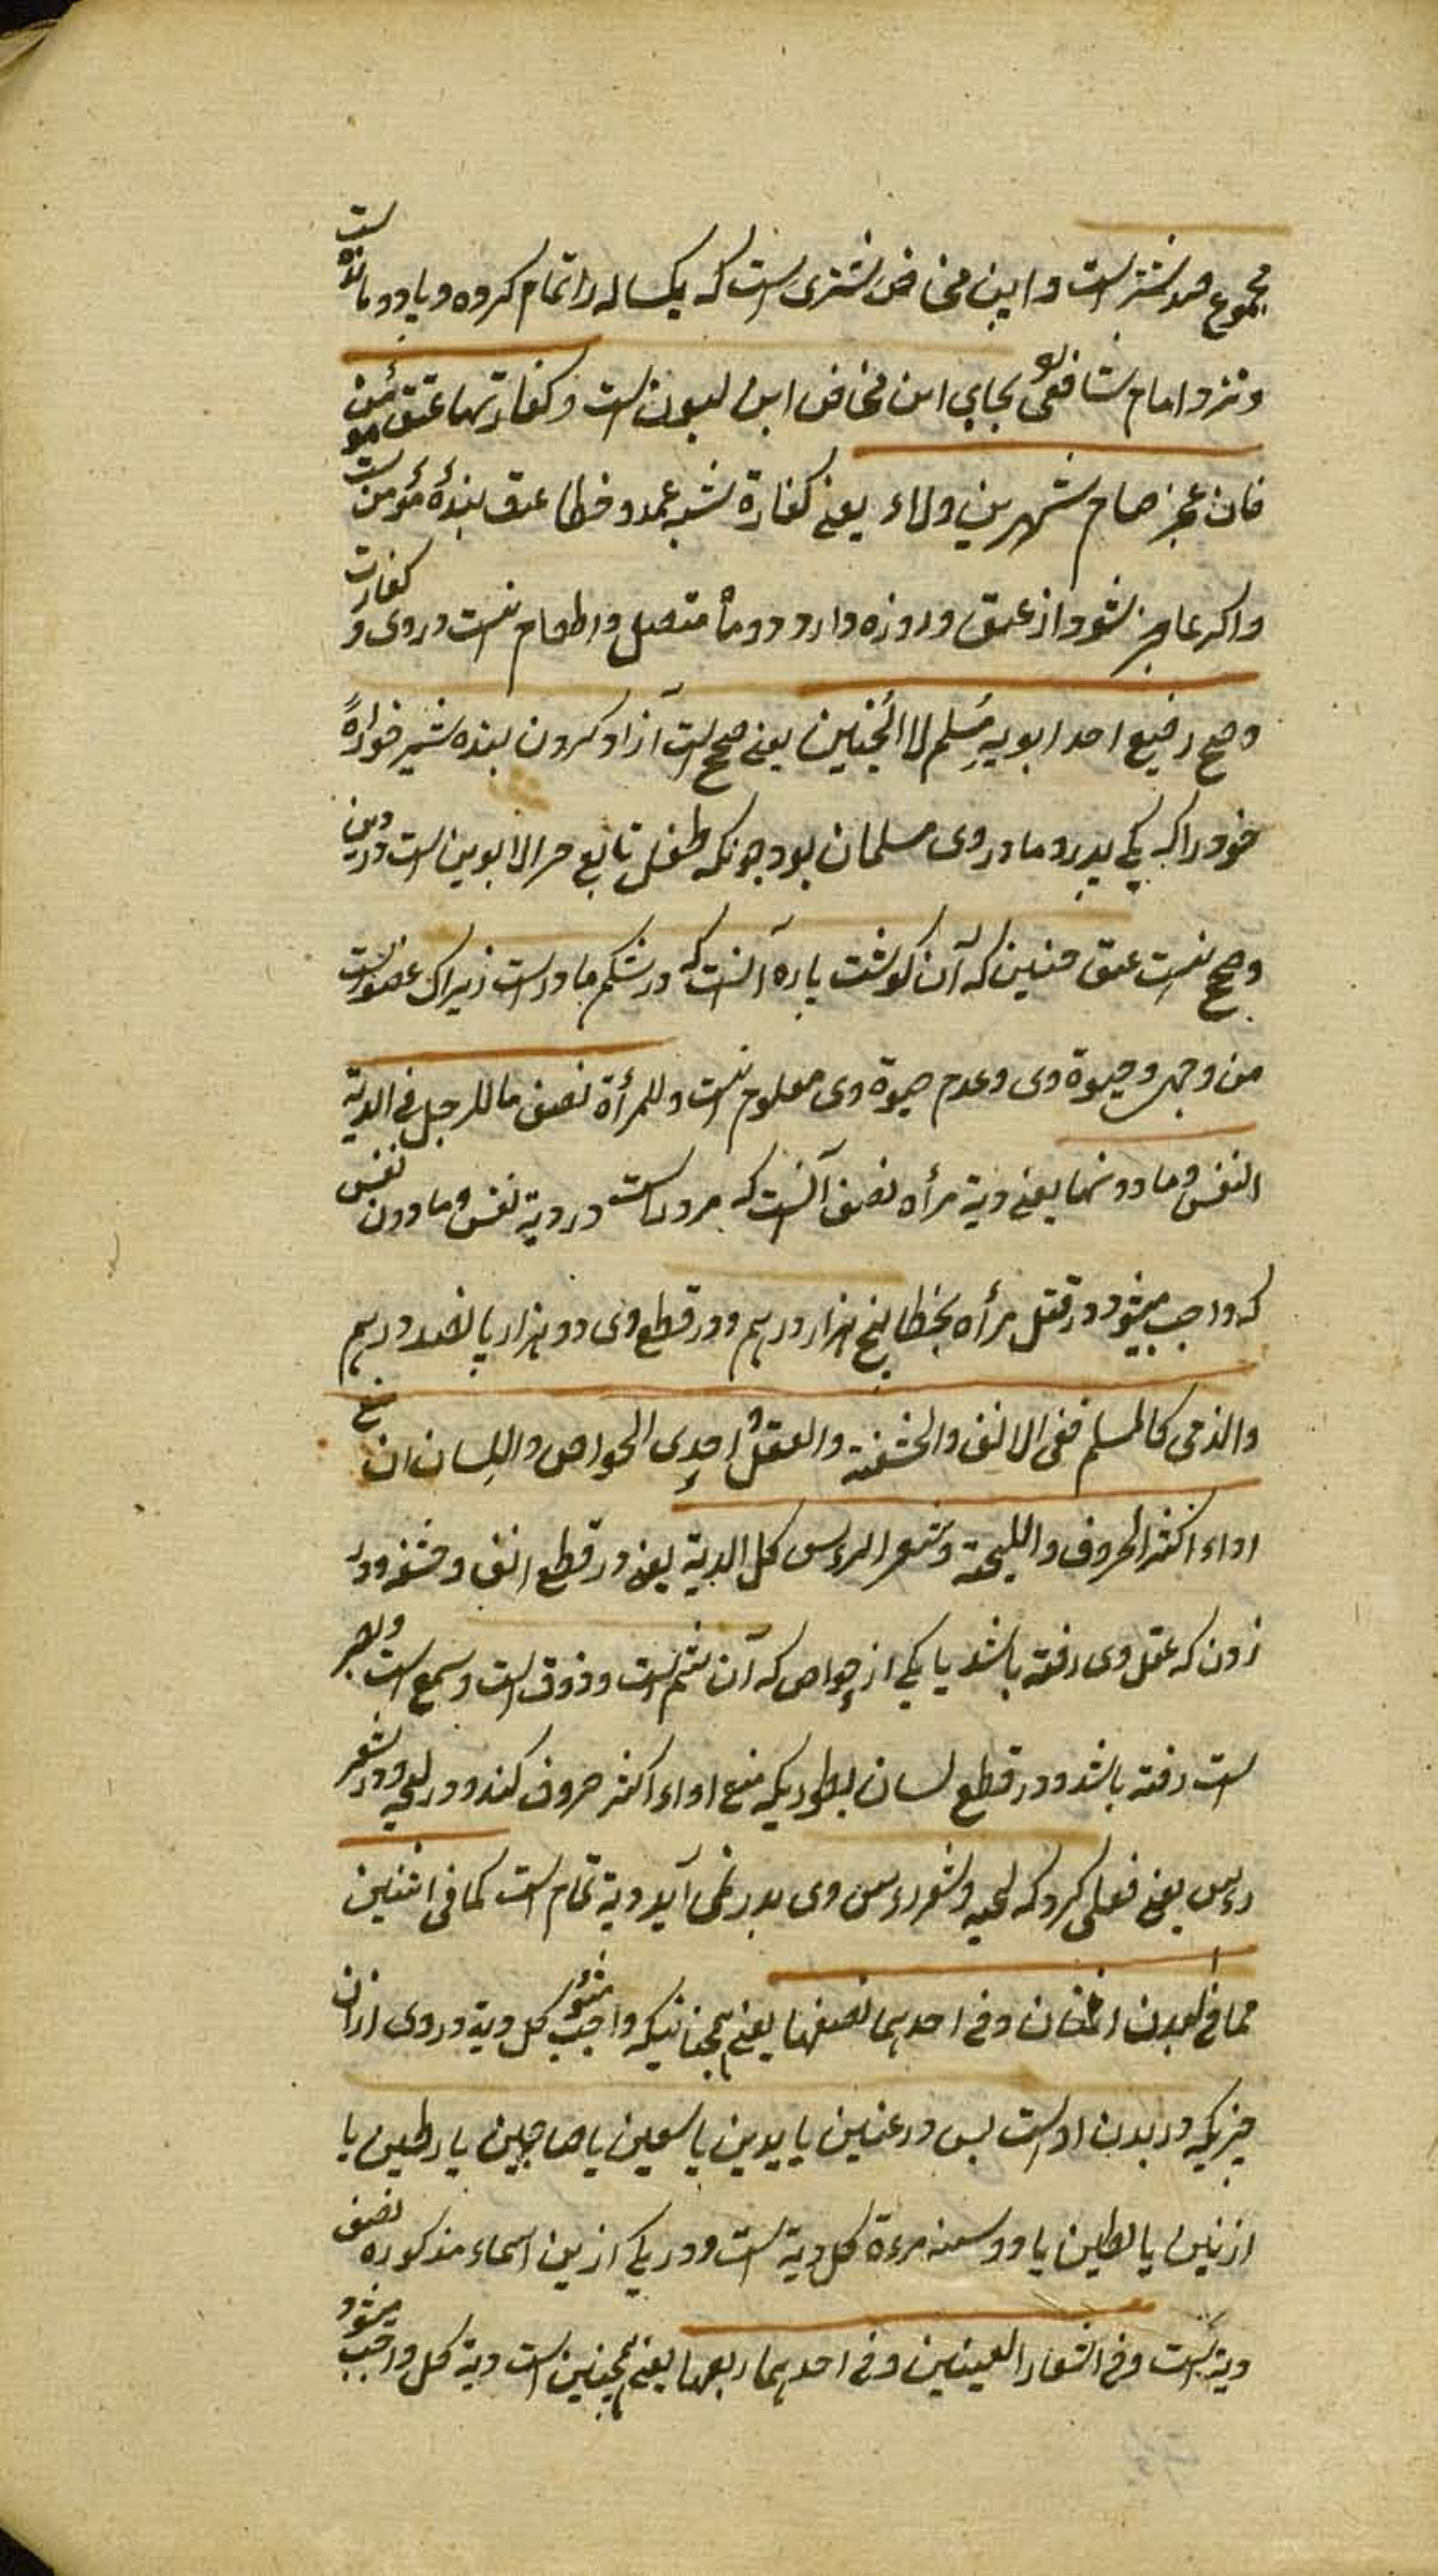 مجموع صد شتر است و ابن مخاض شتری است که یکساله را تمام کرده و پا در دو مانده است
و نزد امام شافعی بجای ابن مخاض ابن لبون است و کفارتهما عتق مؤمن
فان عجز صام شهرین ولاء یعنی کفارة شبه عمد و خطا عتق بندۀ مؤمن است
و اکر عاجز شود از عتق روزه دارد دو ماه متصل و اطعام نیست در وی کفارت
و صح رضیع احد ابویه مسلم لا الجنین یعنی صحیح است آزاد کردن بنده شیر خواره
خود را که یکی پدر و مادر وی مسلمان بود چونکه طفل تابع خیر الابوین است در دین
و صحیح نیست عتق جنین که آن کوشت پاره آنست که در شکم مادر است زیراک عضو است
من وجه و حیوة وی و عدم حیوة وی معلوم نیست و للمرأة نصف ما للرجل فی الدیة
النفس و ما دونها یعنی دیة مرأه نصف آنست که مرد راست در دیة نفس و ما دون نفس
که واجب میشود در قتل مرأه بخطا پنج هزار درهم و در قطع وی دو هزار پانصد درهم
والذمی کالمسلم ففی الانف والحشفة والعقل و احدی الحواس واللسان ان منع
اداء اکثر الحروف واللیحة و شعر الرءس کل الدیة یعنی در قطع انف و حشفه و در
زدن که عقل وی رفته باشد یا یکی از حواس که آن شم است و ذوق است و سمع است و بصر
است رفته باشد و در قطع لسان بطوریکه منع اداء اکثر حروف کند و در لحیه و در شعر
رءس یعنی فعلی کرد که لحیه و شعر رءس وی بدر نمی آید دیة تمام است کما فی اثنین
مما فی البدن اثنان و فی احدهما نصفها یعنی همچنانیکه واجب میشود کل دیة در وی از آن
چیزیکه در بدن او است پس در عینین یا یدین یا شفتین یا حاجبین یا رجلین یا
اذنین یا انثیین یا دو سینه مرءة کل دیة است و در یکی ازین اسماء مذکوره نصف
دیة است و فی اشفار العینین و فی احدهما ربعها یعنی همچنین است دیة کل واجب میشود